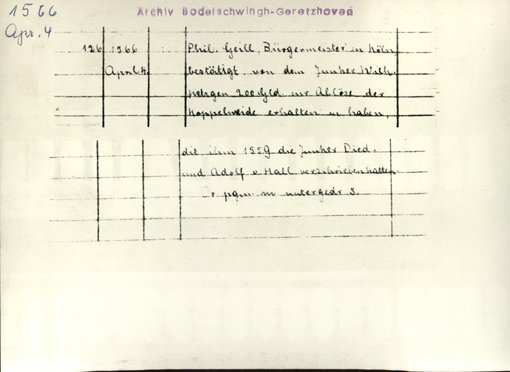 1566
Apr. 4
Archiv Bodelschwingh-Geretzhoven
126 1566 Phil. Geill, Bürgermeister in Köln
April 4 bestätigt, von dem Junker Walh
200 Gld zur Ablöse der
Koppelweide erhalten zu haben,
die ihm 1559 die Junker Died.
und Adolf v. Hall verschrieben hatten
Or. pgm. m. untergedr S.